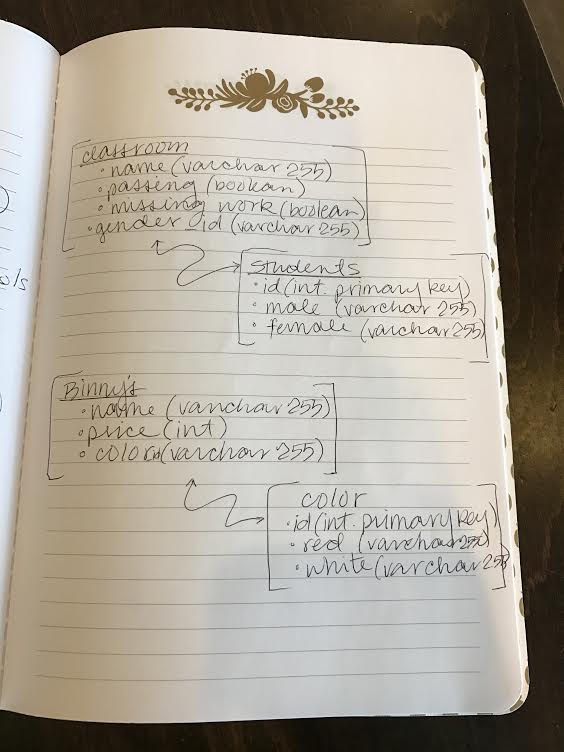 classroom
• name (varchar 255)
• passing (boolean)
• missing work (boolean)
• gender id (varchar 255)
students
• id (int. primary key)
• male (varchar 255)
• female (varchar 255)
Binny's
• name (varchar 255)
• price (int)
• color id (varchar 255)
color
• id (int. primary key)
• red (varchar 255)
• white (varchar 255)
ols